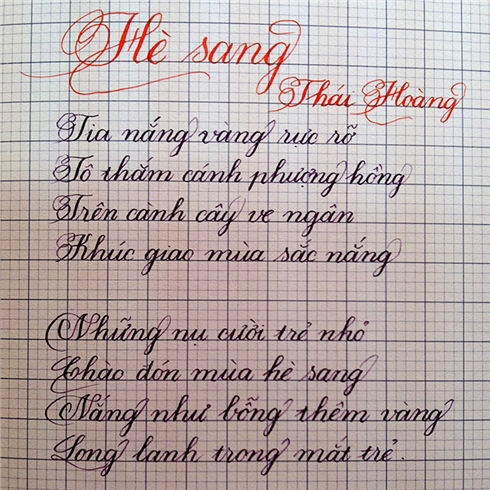 Hè sang
Thái Hoàng
Tia nắng vàng rực rỡ
Tô thắm cánh phượng hồng
Trên cành cây ve ngân
Khúc giao mùa sắc nắng
Những nụ cười trẻ nhỏ
Chào đón mùa hè sang
Nắng như bỗng thêm vàng
Long lanh trong mắt trẻ.